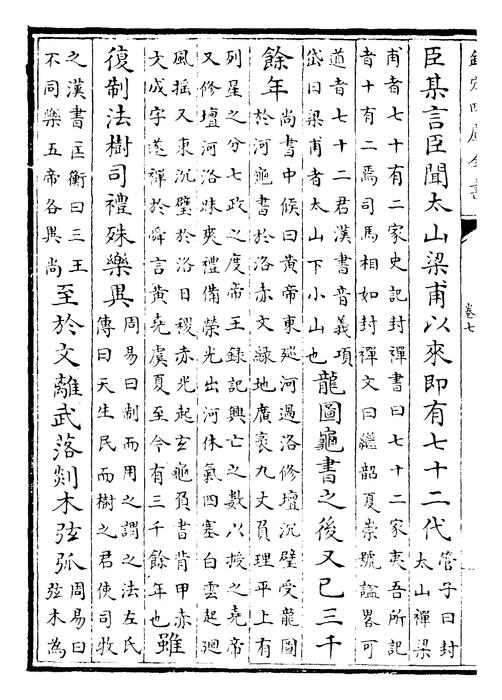 欽定四庫全書
卷七
臣某言臣聞太山梁甫以來即有七十二代
管子曰封
太山禪梁
甫者七十有二家史記封禪書曰七十二家夷吾所記
者十有二焉司馬相如封禪文曰繼韶夏崇號諡畧可
道者七十二君漢書音義項
岱曰梁甫者太山下小山也
龍圖龜書之後又已三千
餘年
尚書中候曰黃帝東廵河過洛修壇沉璧受龍圖
於河龜書於洛赤文緑地廣袤九丈員理平上有
列星之分七政之度帝王録記興亡之數以授之堯帝
又修壇河洛昧爽禮備榮光出河休氣四塞白雲起迴
風揺又東沉璧於洛日稷赤光起玄龜負書背甲赤
文成字遂禪於舜言黄堯虞夏至今有三千餘年也
雖
復制法樹司禮殊樂異
周易曰制而用之謂之法左氏
傳曰天生民而樹之君使司牧
之漢書匡衡曰三王
不同樂五帝各異尚
至於文離武落剡木弦弧
周易曰
弦木為